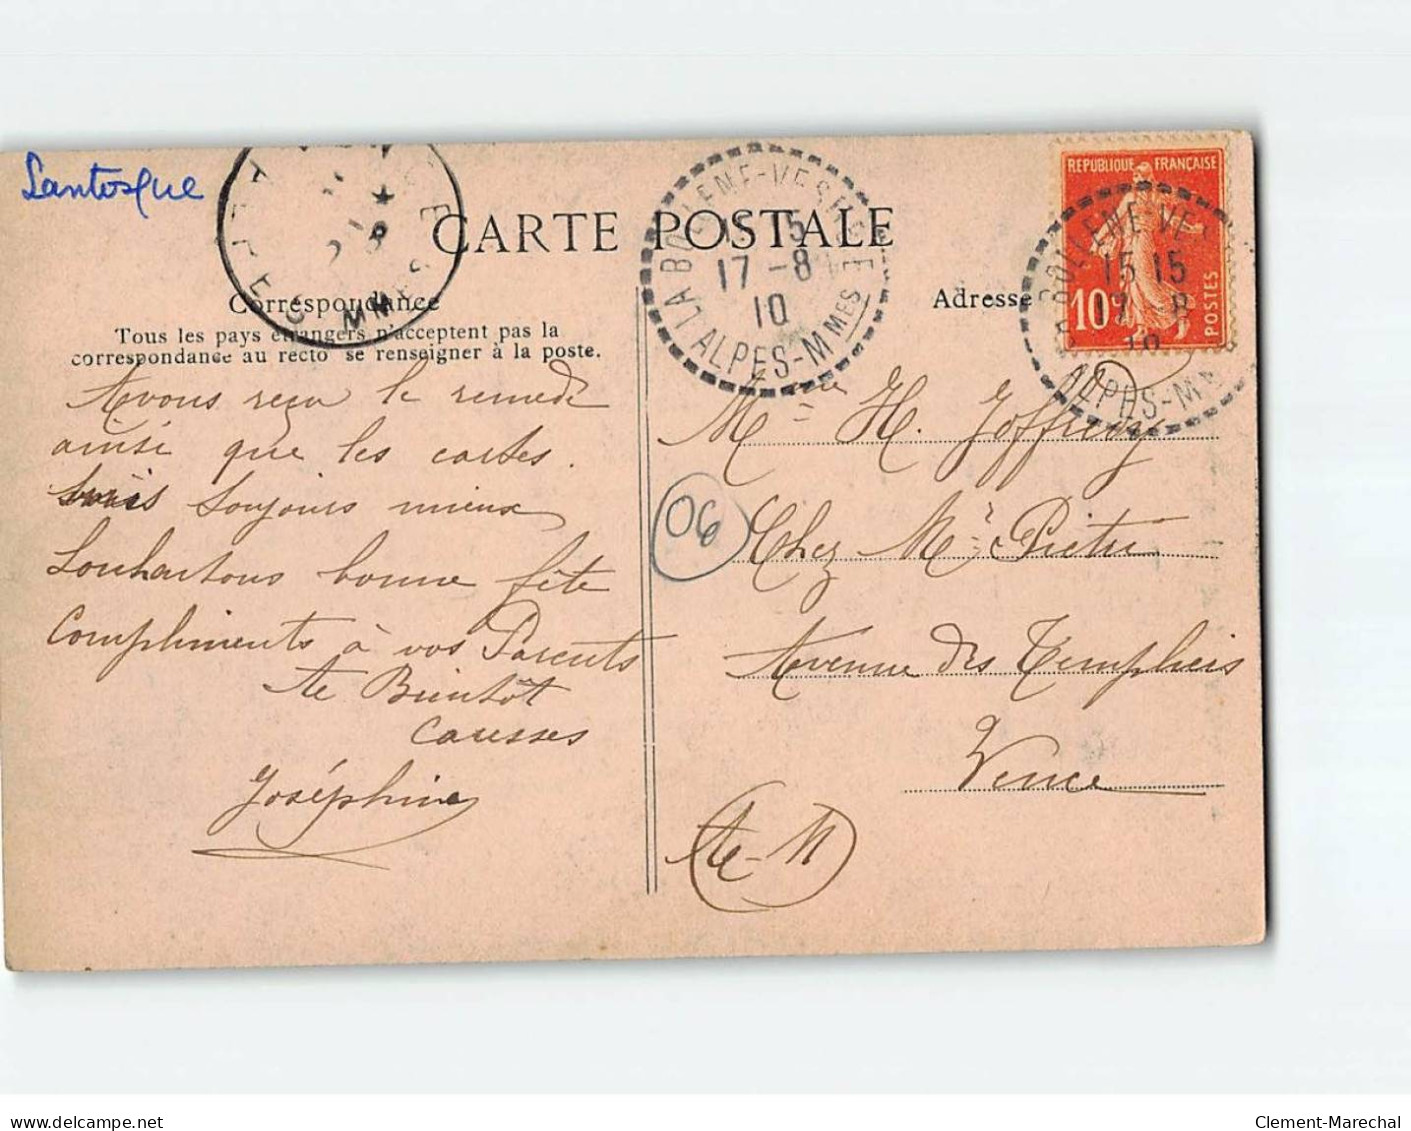 Lantosque
CARTE POSTALE
Correspondance
Tous les pays étrangers n'acceptent pas la
correspondance au recto se renseigner à la poste.
Avons reçu le remede
ainsi que les cartes.
Suis toujours mieux
Souhaitons bonne fête
Compliments à vos Parents
A Bientôt
Caresses
Joséphine
LA BOLLENE-VESUBIE
15
17-8
10
ALPES-MMES
Adresse
REPUBLIQUE FRANÇAISE
10c
POSTES
BOLLENE-VE
15 15
17-8
10
ALPES-M
H. Joffredy
06
Chez Mr Pietri
Avenue des Templiers
Vence
A-M
delcampe.net
Clement-Marechal